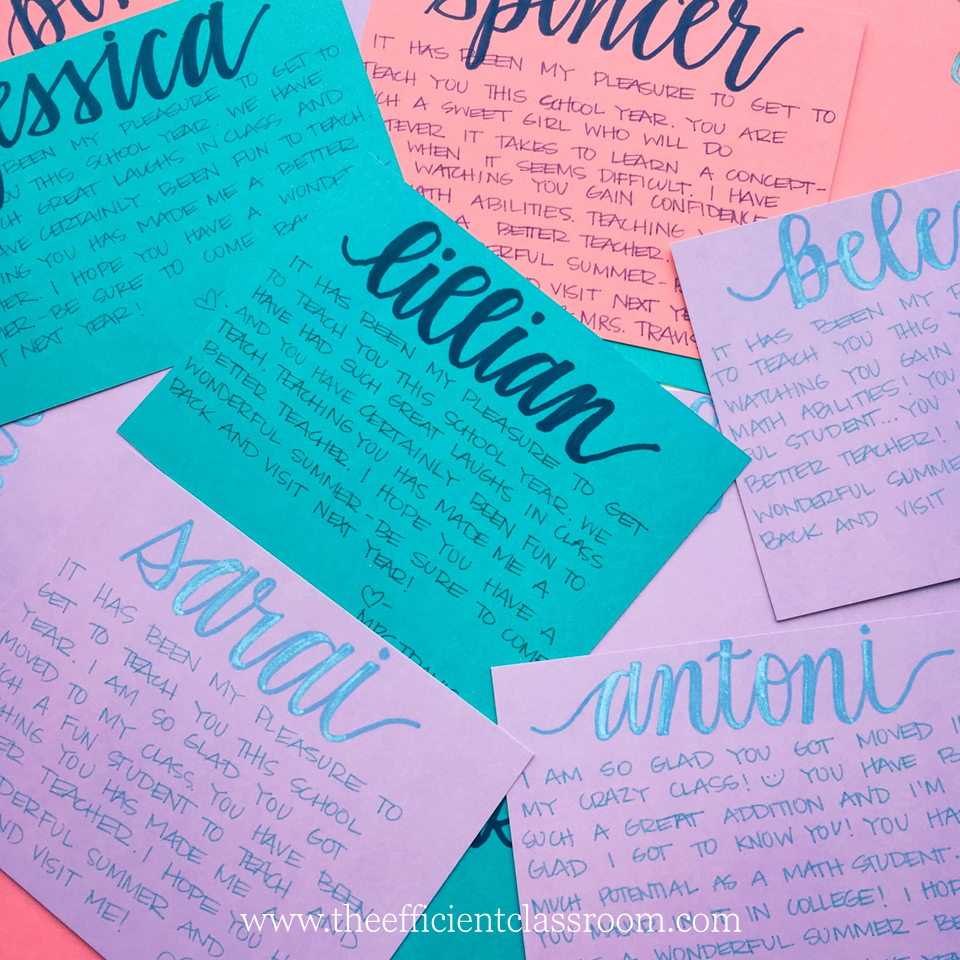 essica
BEEN MY PLEASURE TO GET TO
THIS SCHOOL YEAR. WE HAVE
GREAT LAUGHS IN CLASS AND
CERTAINLY BEEN FUN TO TEACH
YOU HAS MADE ME A BETTER
I HOPE YOU HAVE A
BE SURE TO COME
NEXT YEAR!
spencer
IT HAS BEEN MY PLEASURE TO GET TO
TEACH YOU THIS SCHOOL YEAR. YOU ARE
A SWEET GIRL WHO WILL DO
IT TAKES TO LEARN A CONCEPT-
WHEN IT SEEMS DIFFICULT. I HAVE
WATCHING YOU GAIN CONFIDENCE
ABILITIES. TEACHING
A BETTER TEACHER.
SUMMER-
TO VISIT NEXT
MRS.
lillian
IT HAS BEEN MY PLEASURE TO GET
TO TEACH YOU THIS SCHOOL YEAR. WE
HAVE HAD SUCH GREAT LAUGHS IN CLASS
AND YOU HAVE CERTAINLY BEEN FUN TO
TEACH. TEACHING YOU HAS MADE ME A
BETTER TEACHER. I HOPE YOU HAVE A
WONDERFUL SUMMER-BE SURE TO COME
BACK AND VISIT NEXT YEAR!
♡-
MRS.
bele
IT HAS BEEN MY
TO TEACH YOU THIS
WATCHING YOU GAIN
MATH ABILITIES! YOU
STUDENT... YOU
BETTER TEACHER!
WONDERFUL
BACK AND VISIT
sarai
IT HAS BEEN MY PLEASURE TO
GET TO TEACH YOU THIS SCHOOL
YEAR. I AM SO GLAD YOU GOT
MOVED TO MY CLASS. YOU HAVE BEEN
A FUN STUDENT TO TEACH
YOU HAS MADE ME A
TEACHER. I HOPE YOU
SUMMER AND
VISIT ME!
antoni
I AM SO GLAD YOU GOT MOVED
MY CRAZY CLASS! YOU HAVE
SUCH A GREAT ADDITION AND I'M
GLAD I GOT TO KNOW YOU! YOU
MUCH POTENTIAL AS A MATH STUDENT.
YOU MAJOR IN IT IN COLLEGE! I
A WONDERFUL SUMMER-
www.theefficientclassroom.com